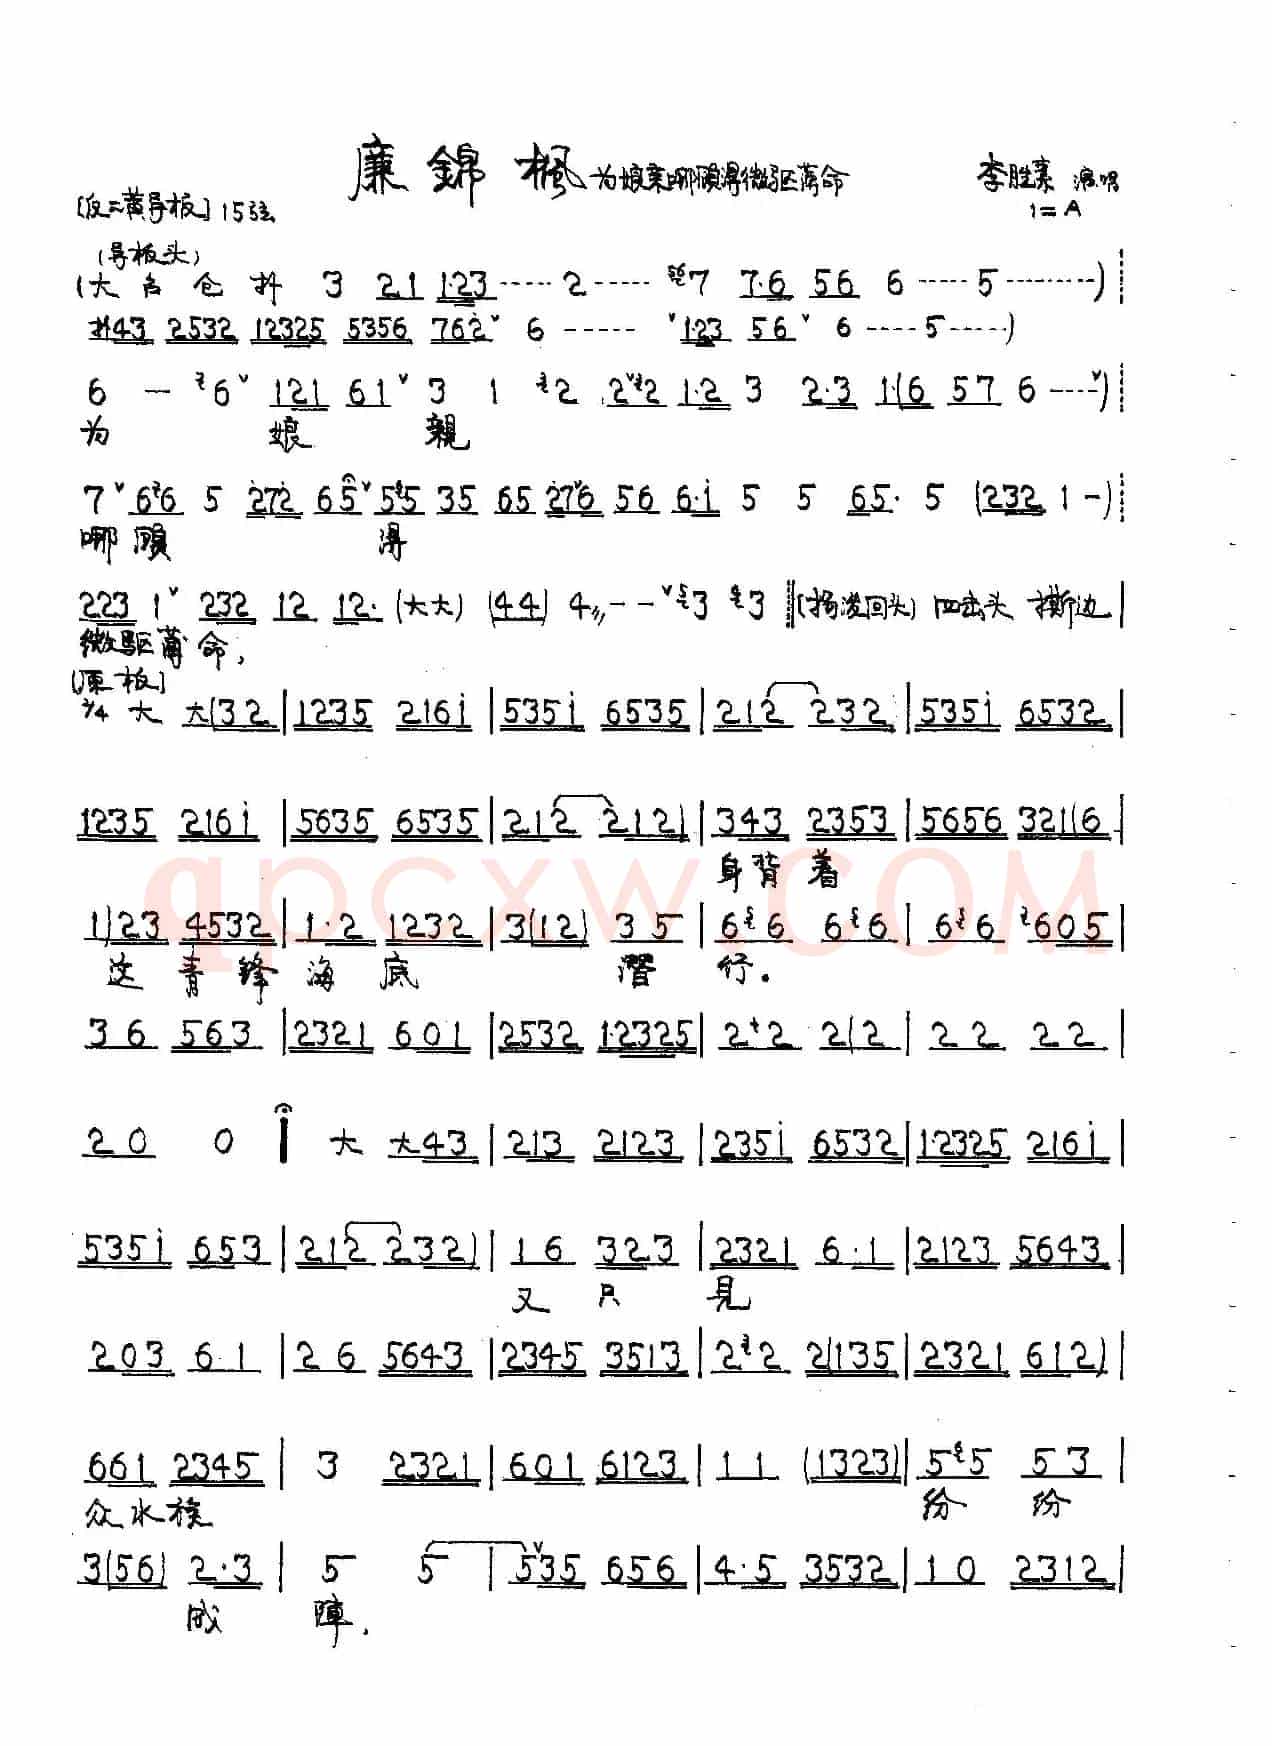 廉錦楓 为娘亲哪顾得微躯薄命 李胜素 演唱
[反二黄导板] 15弦 1=A
(导板头)
(大 台 仓 扑 3 21 1·23 ····· 2 ····· 7 7·6 56 6 ····· 5 ·········)
扑43 2532 12325 5356 762 6 ----- 123 56 6 ---- 5 -----)
6 — 6 121 61 3 1 2 2 2 1·2 3 2·3 1(6 57 6 ----)
为 娘 親
7 66 5 272 65 55 35 65 276 56 6·i 5 5 65· 5 (232 1 -)
哪顾 得
223 1 232 12 12· (大大) (44) 4 -- 3 3 (扬泼回头) 四击头 撕边
微躯薄命,
[原板]
2/4 大 大(32 | 1235 216i | 535i 6535 | 212 232 | 535i 6532 |
1235 216i | 5635 6535 | 212 212) | 343 2353 | 5656 321(6 |
身背着
1)23 4532 | 1·2 1232 | 3(12) 35 | 66 66 | 66 605 |
这青锋海底 潛 行.
36 563 | 2321 601 | 2532 1·2325 | 22 2(2 | 22 22 |
20 0 | 大 大43 | 213 2123 | 235i 6532 | 1·2325 216i |
535i 653 | 212 232) | 16 323 | 2321 6·1 | 2123 5643 |
又 只 見
203 6·1 | 26 5643 | 2345 3513 | 22 2(135 | 2321 612) |
661 2345 | 3 2321 | 601 6123 | 11 (1323) | 55 53 |
众水族 纷 纷
3(56) 2·3 | 5 5 | 535 656 | 4·5 3532 | 10 2312 |
成 陣,
qpcxw.COM